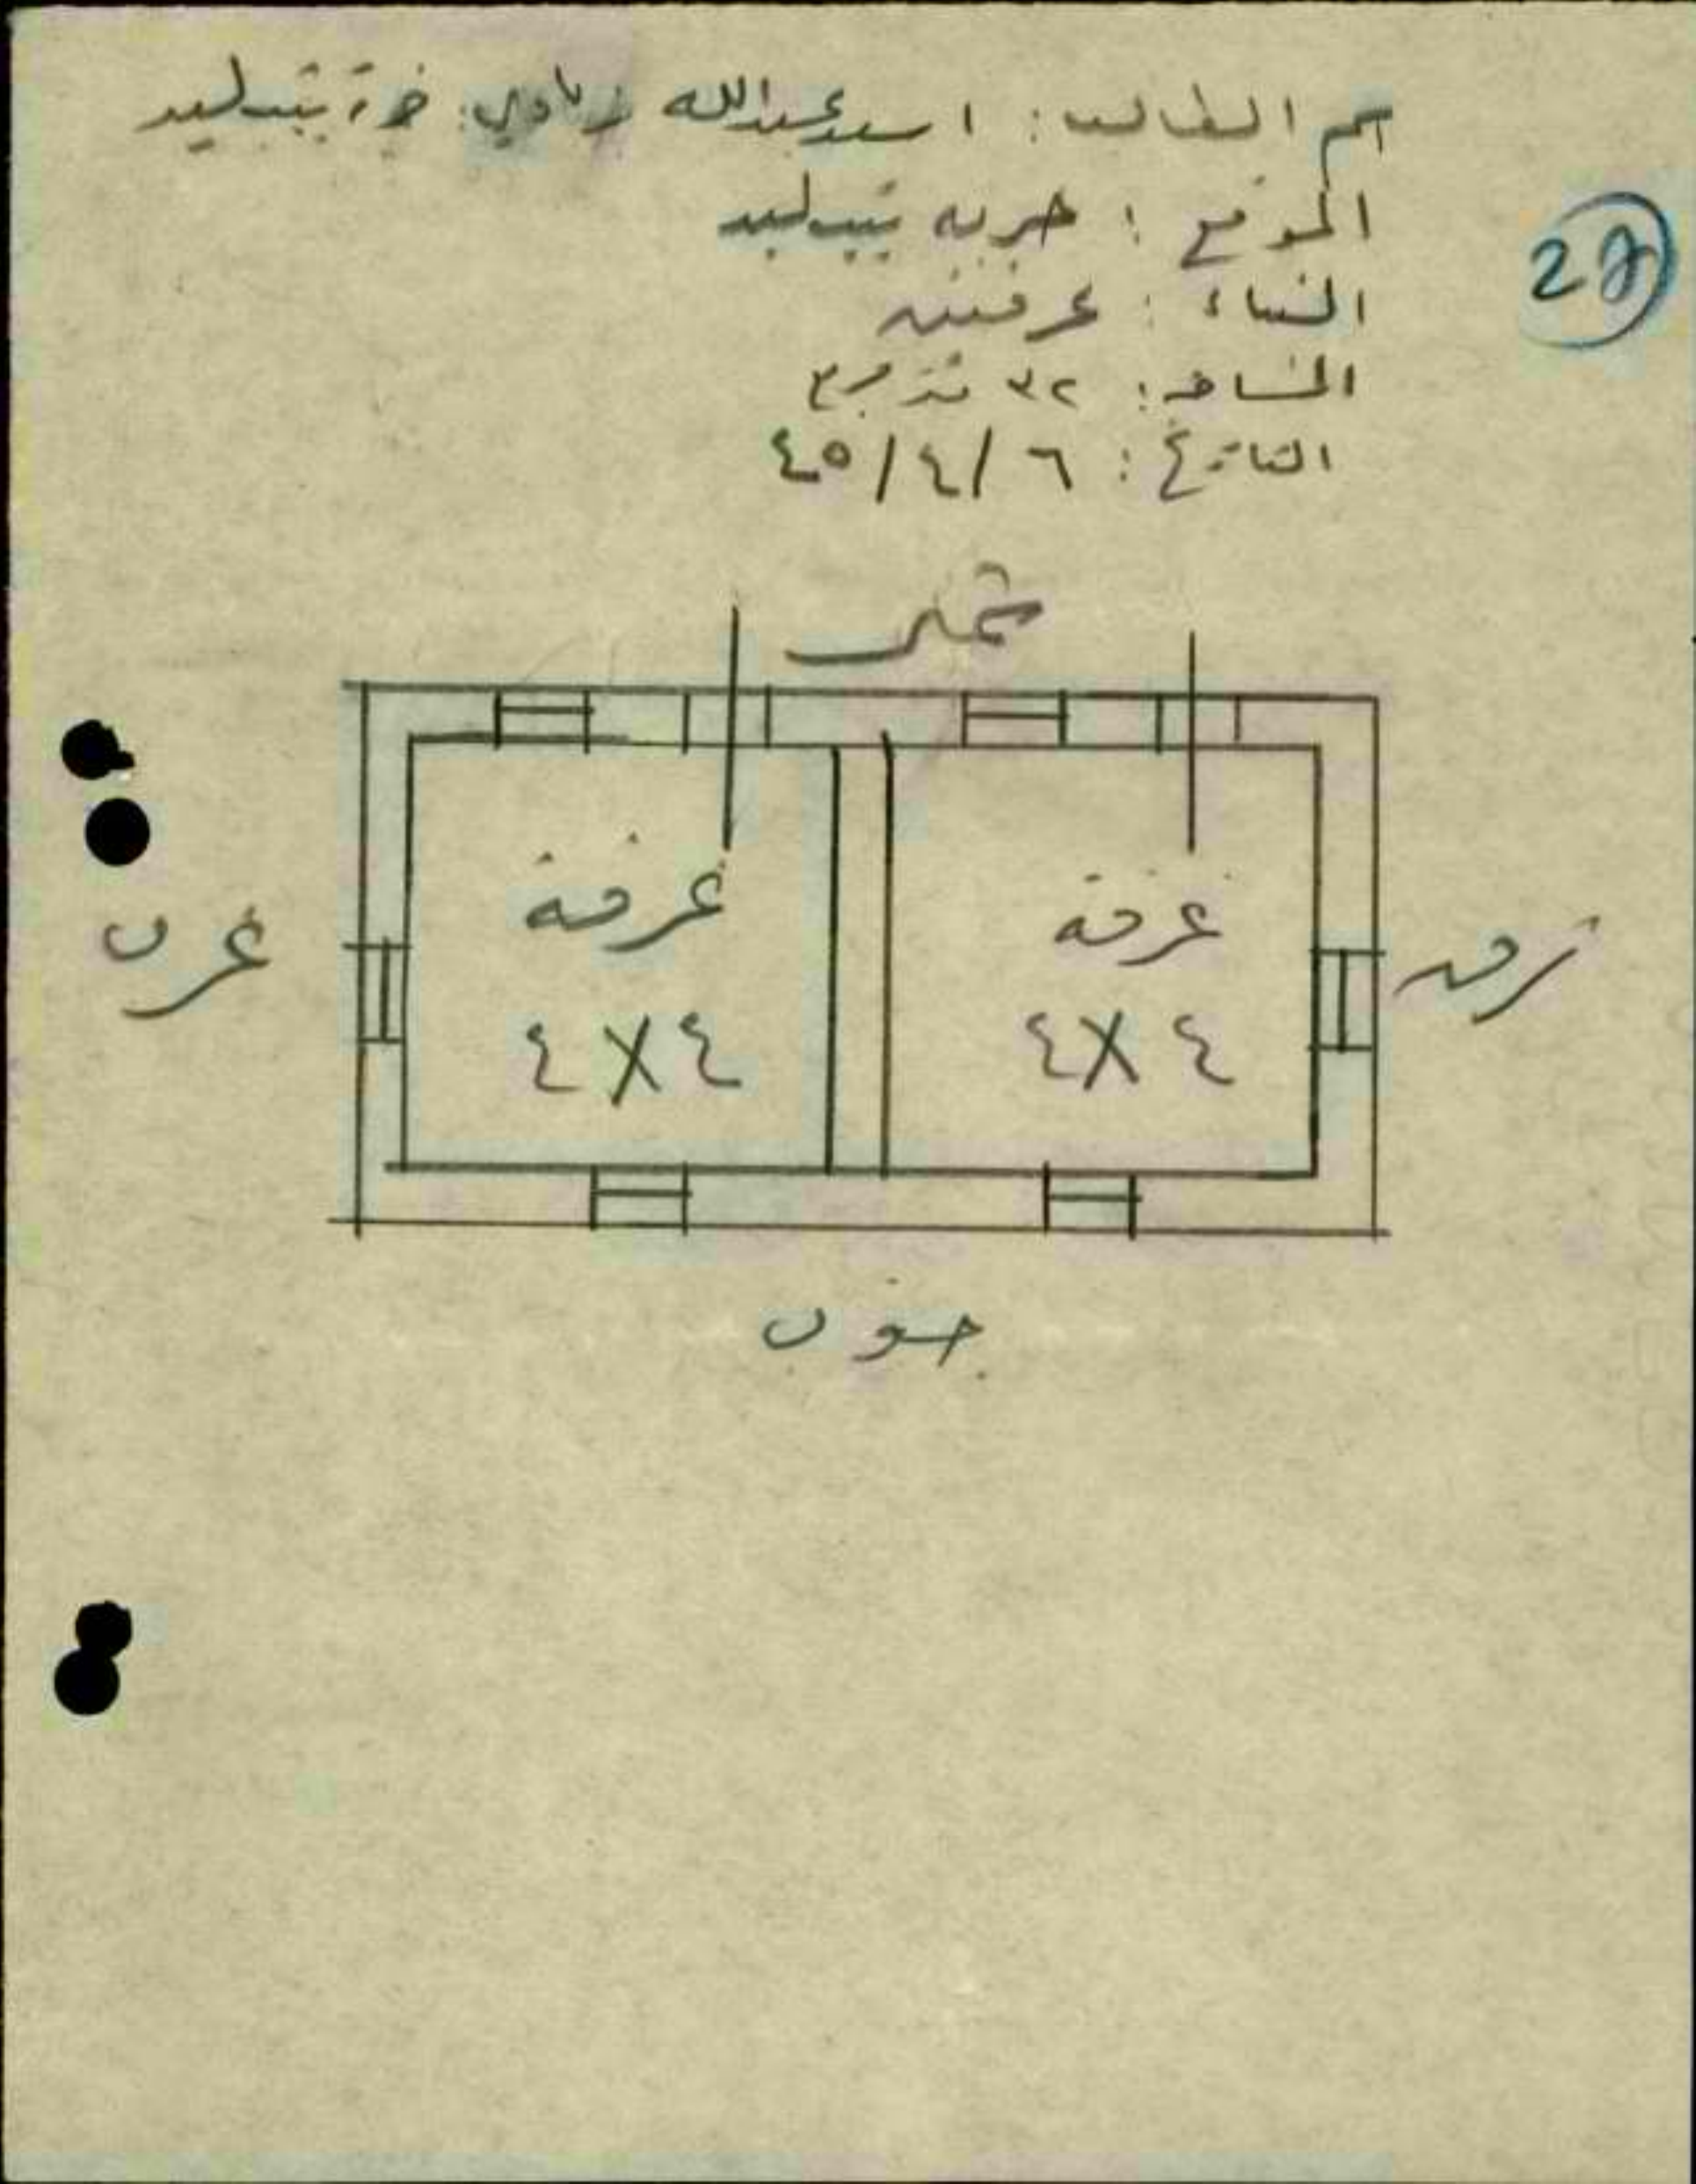 اسم الطالب: اسعد عبدالله زناوي: خربة بيت ليد
الموقع: خربه بيت ليد
البناء: غرفتين
المساحه: ٣٢ متر مربع
التاريخ: ٦/٤/٤٥
27
شمال
غرفة
٤X٤
غرفة
٤X٤
غرب
شرق
جنوب